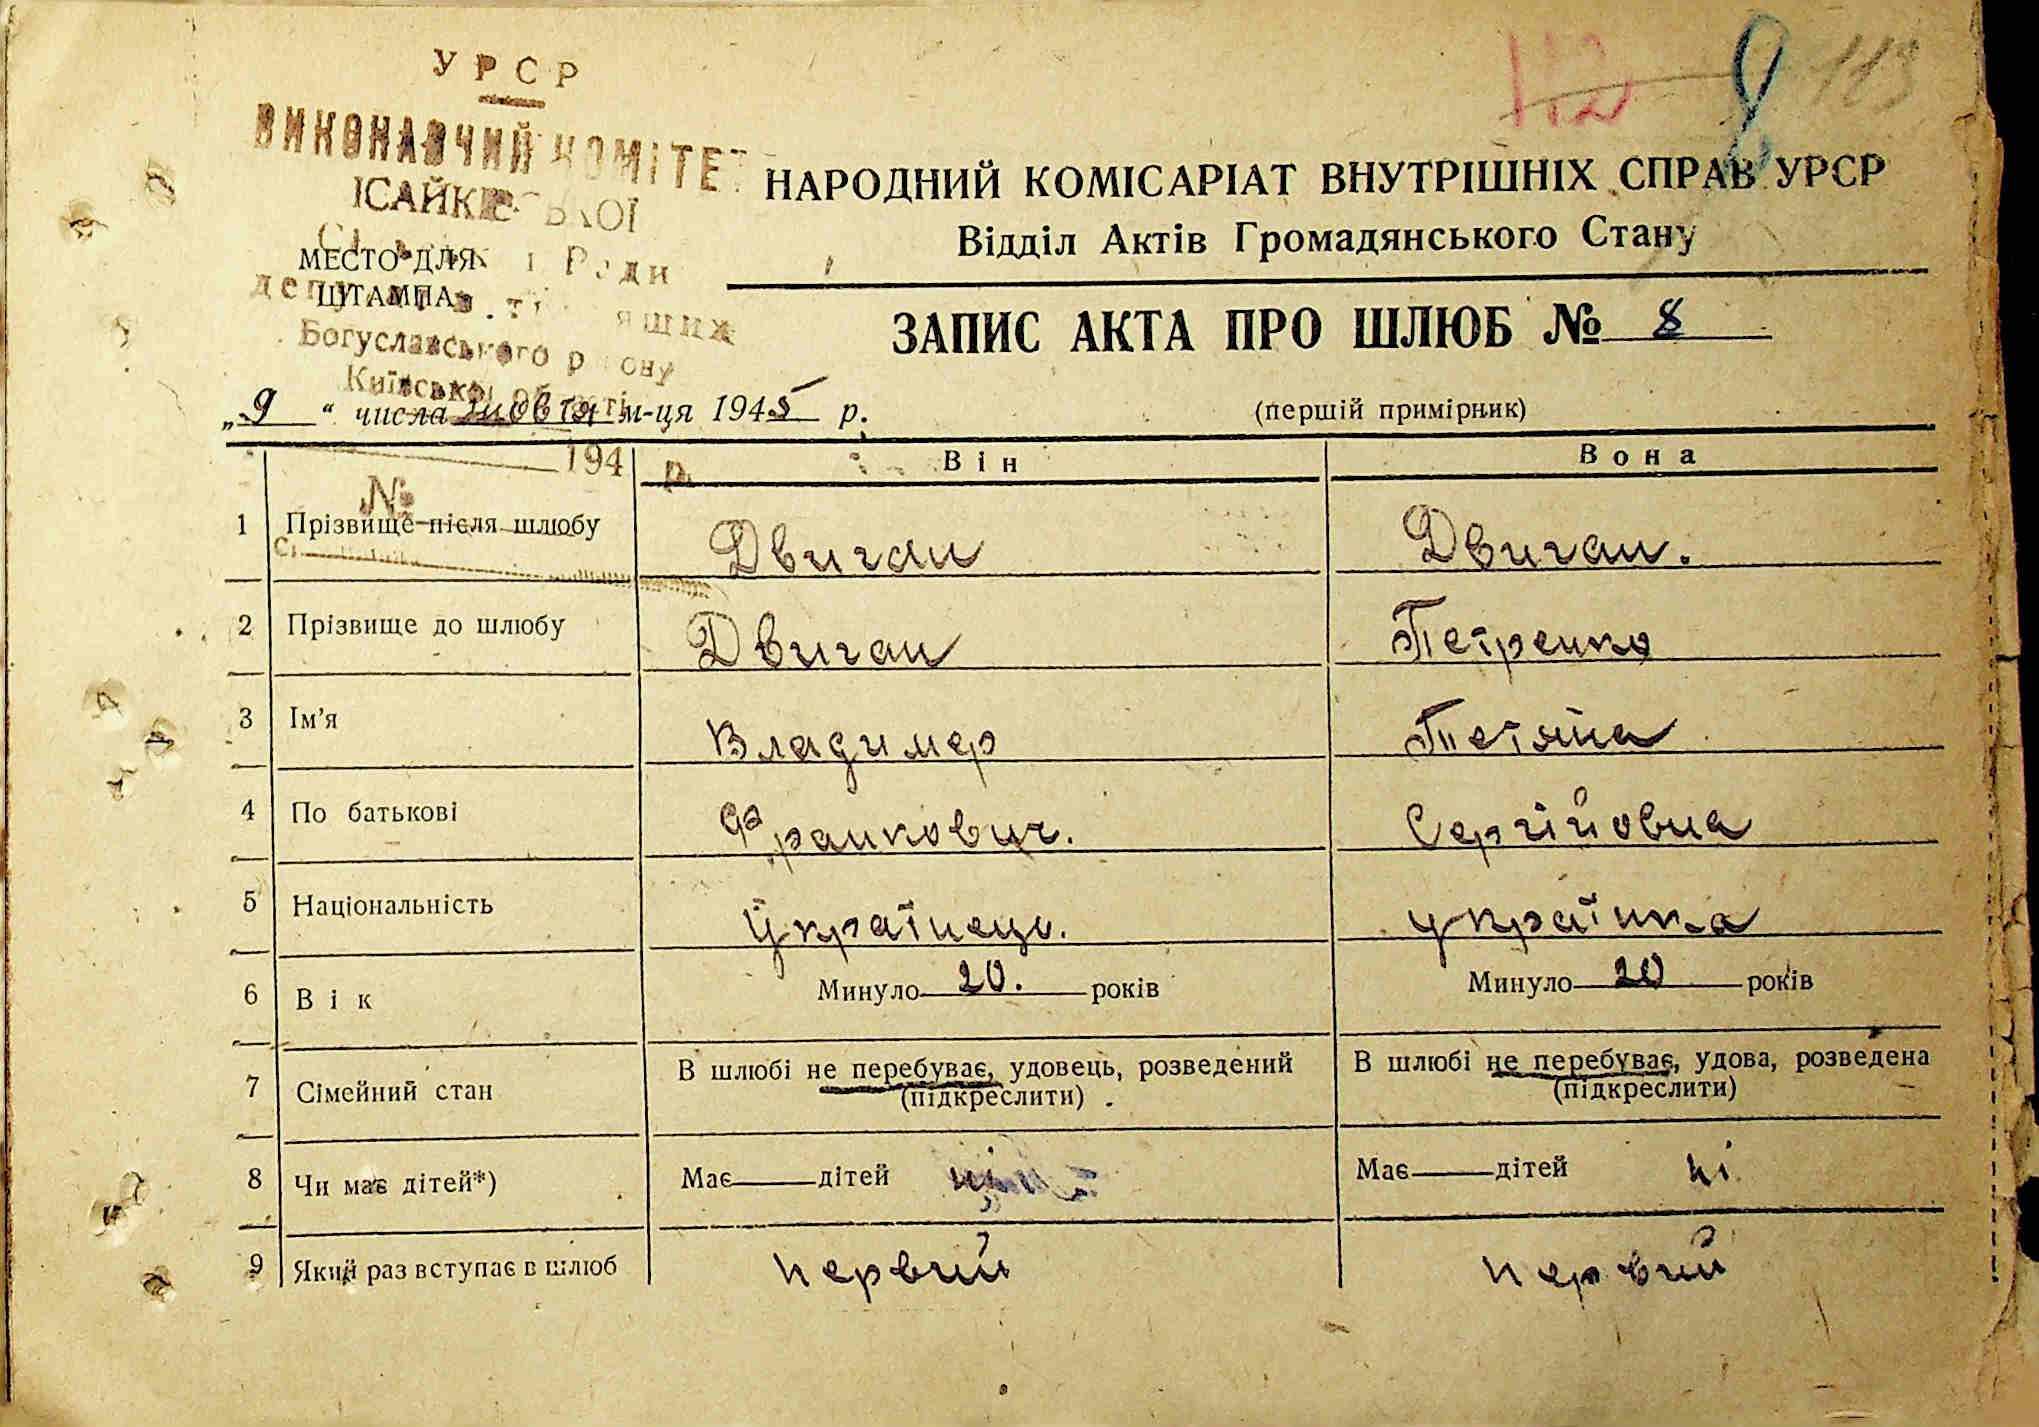 112 8 113
УРСР
ВИКОНАВЧИЙ КОМІТЕТ
ІСАЙКІВСЬКОЇ
МЕСТО ДЛЯ
ШТАМПА
Богуславського району
Київської області
НАРОДНИЙ КОМІСАРІАТ ВНУТРІШНІХ СПРАВ УРСР
Відділ Актів Громадянського Стану
ЗАПИС АКТА ПРО ШЛЮБ № 8
„9“ числа жовтня м-ця 1945 р.
(першій примірник)
194 р.
№
Він Вона
1 Прізвище після шлюбу Двиган Двиган.
2 Прізвище до шлюбу Двиган Петренко
3 Ім'я Владимер Тетяна
4 По батькові Франкович. Сергійовна
5 Національність Українець. українка
6 Вік Минуло 20. років Минуло 20 років
7 Сімейний стан В шлюбі не перебуває, удовець, розведений В шлюбі не перебуває, удова, розведена
(підкреслити) (підкреслити)
8 Чи має дітей*) Має дітей ні Має дітей ні
9 Який раз вступає в шлюб первий первий